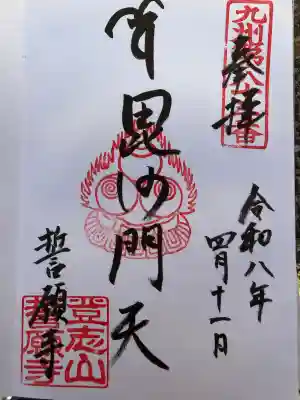 九州第八十 番
奉拝
令和八年
四月十一日
毘沙門天
誓願寺
登志山
誓願寺